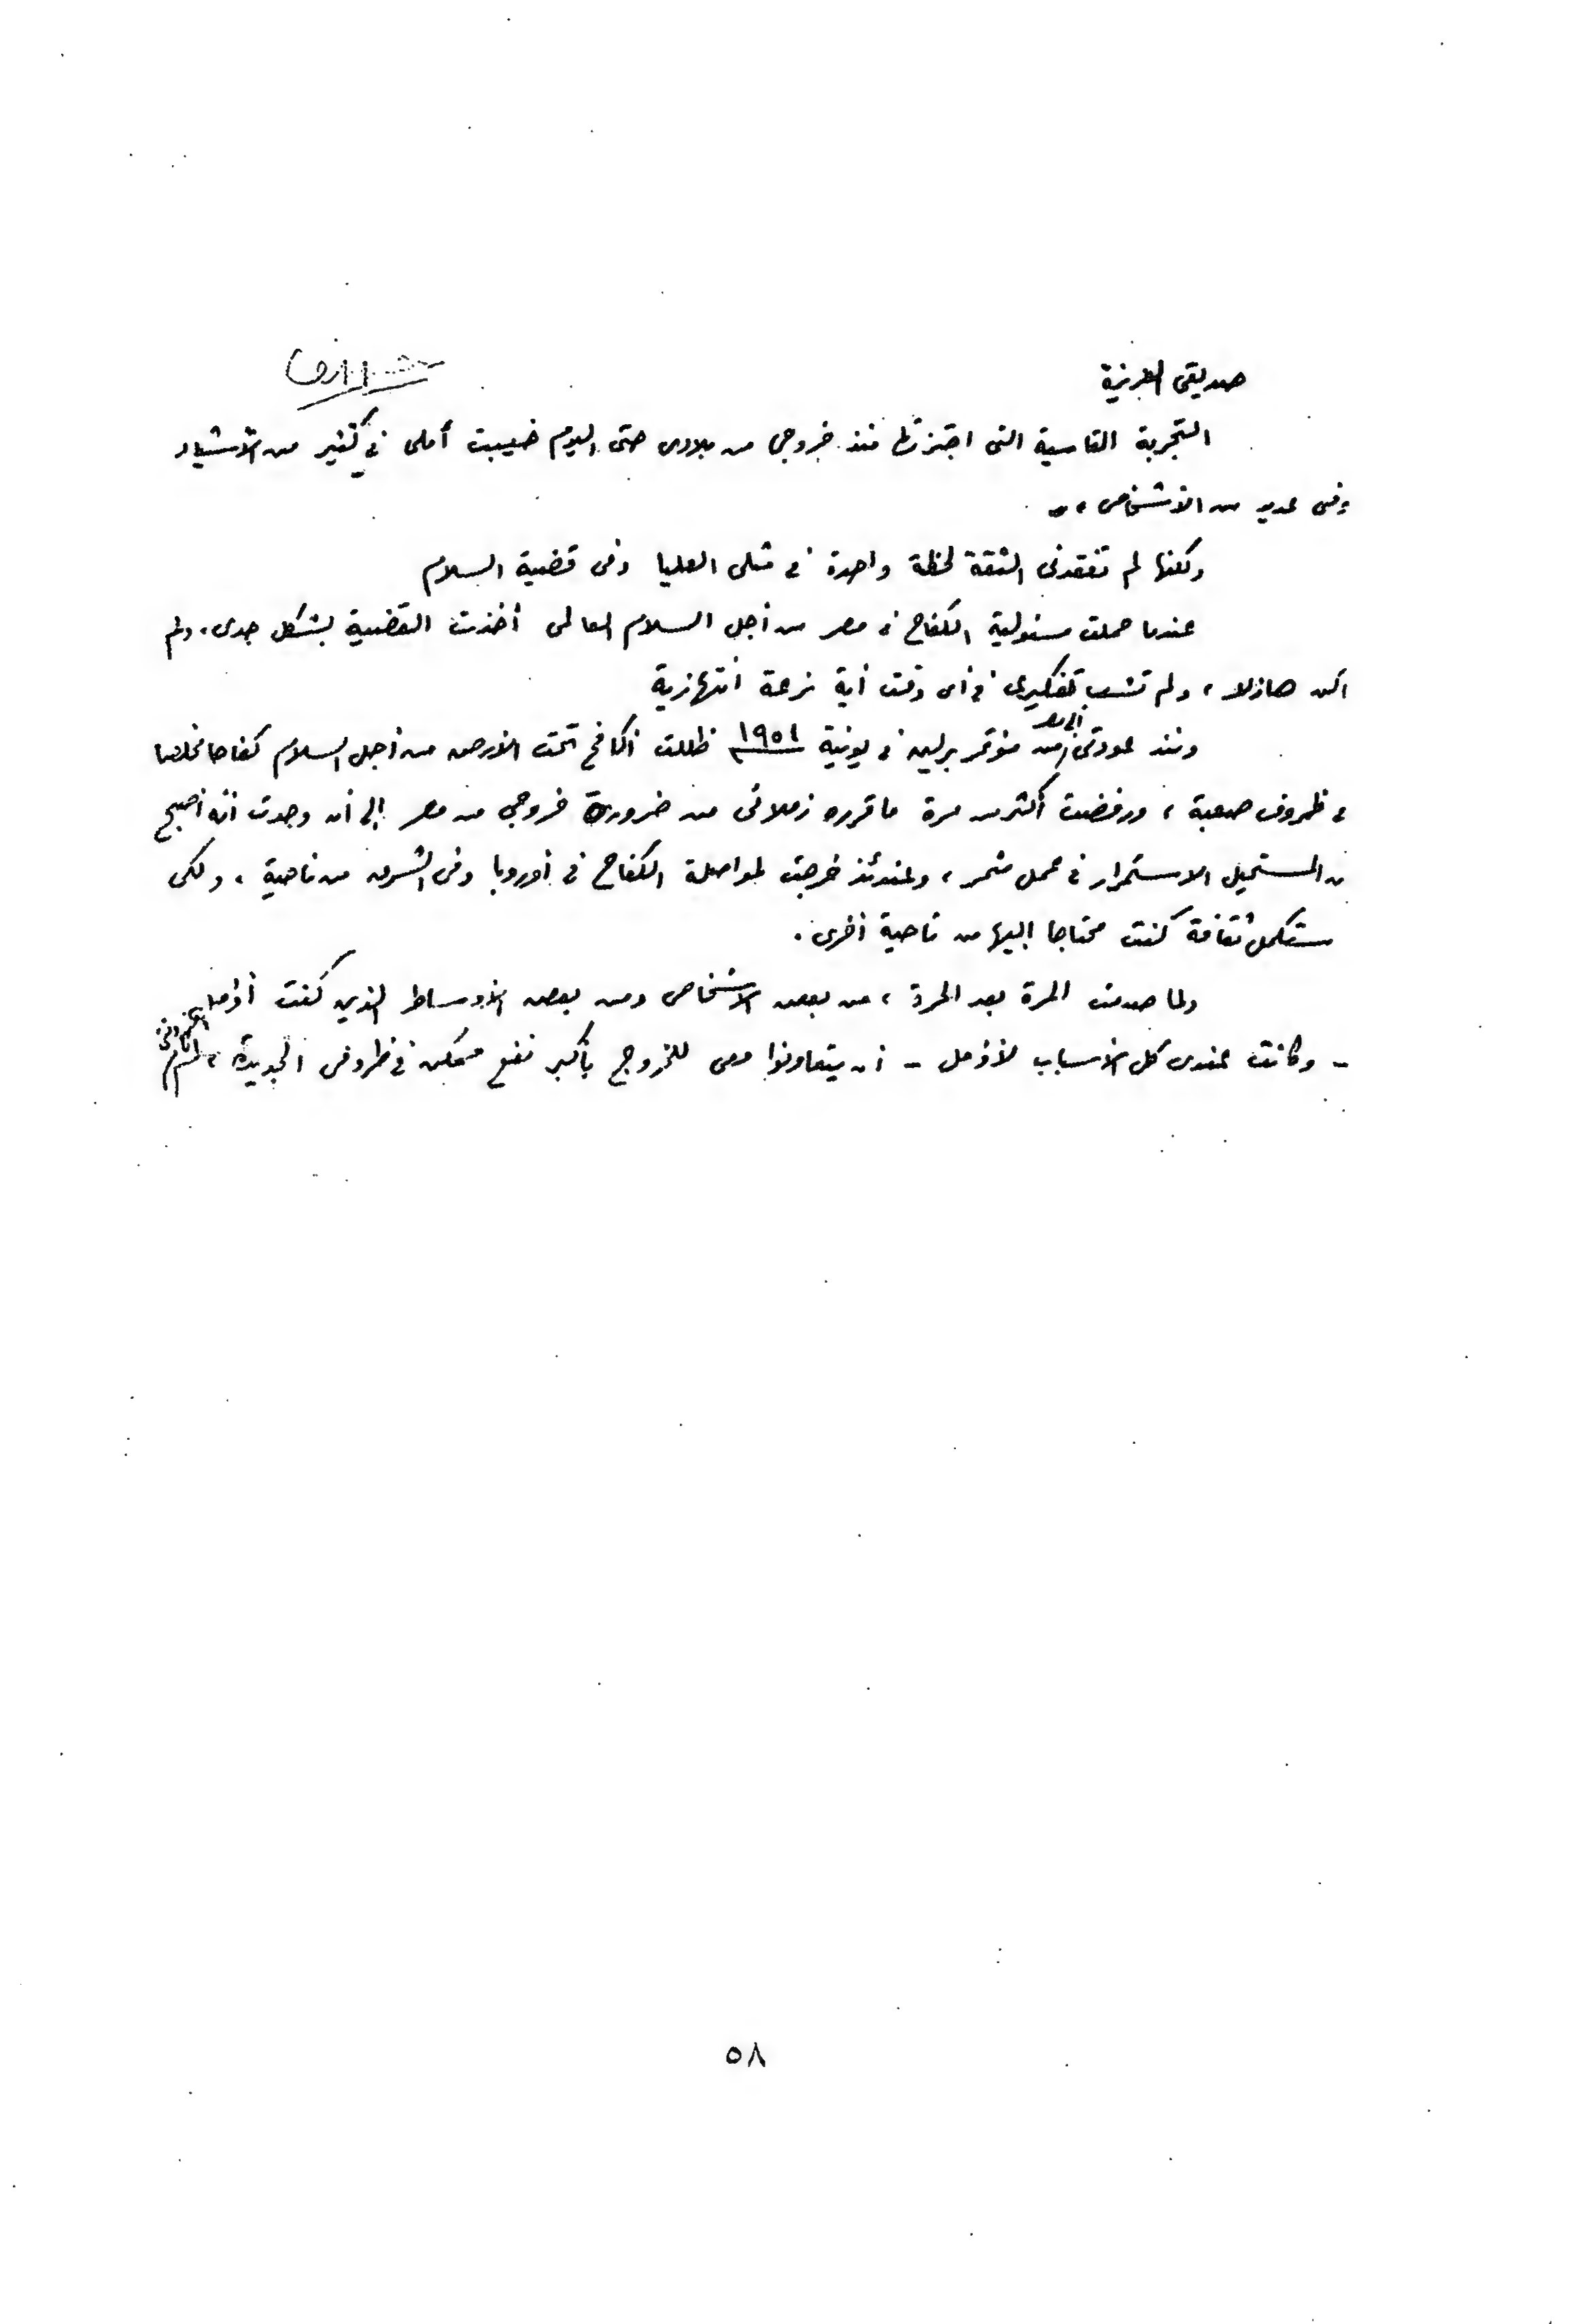 صديقتى العزيزة
التجربة القاسية التى اجتزتها منذ خروجى من بلادى حتى اليوم خيبت أملى فى كثير من الأشياء
وفى عديد من الأشخاص ،
ولكنها لم تفقدنى الثقة لحظة واحدة فى مثلى العليا وفى قضية السلام
عندما حملت مسئولية الكفاح فى مصر من أجل السلام العالمى أخذت القضية بشكل جدى . ولم
اكن هازلا ، ولم تشب تفكيرى فى أى وقت أية نزعة انتهازية
ومنذ عودتى الى مصر من مؤتمر برلين فى يونية ١٩٥١ ظللت أكافح تحت الأرض من أجل السلام كفاحا مخلصا
فى ظروف صعبة ، ورفضت أكثر من مرة ما قرره زملائى من ضرورة خروجى من مصر إلى أن وجدت أنه أصبح
من المستحيل الاستمرار فى عمل مثمر ، وعندئذ خرجت لمواصلة الكفاح فى أوروبا وفى الشرق من ناحية ، ولكى
ستكمل ثقافة كنت محتاجا إليها من ناحية أخرى .
ولما صدمت المرة بعد المرة ، من بعض الأشخاص ومن بعض الأوساط الذين كنت أؤمل
- وكانت عندى كل الأسباب لأؤمل - أن يتعاونوا معى للخروج بأكبر نفع ممكن فى ظروفى الجديدة ،
٥٨